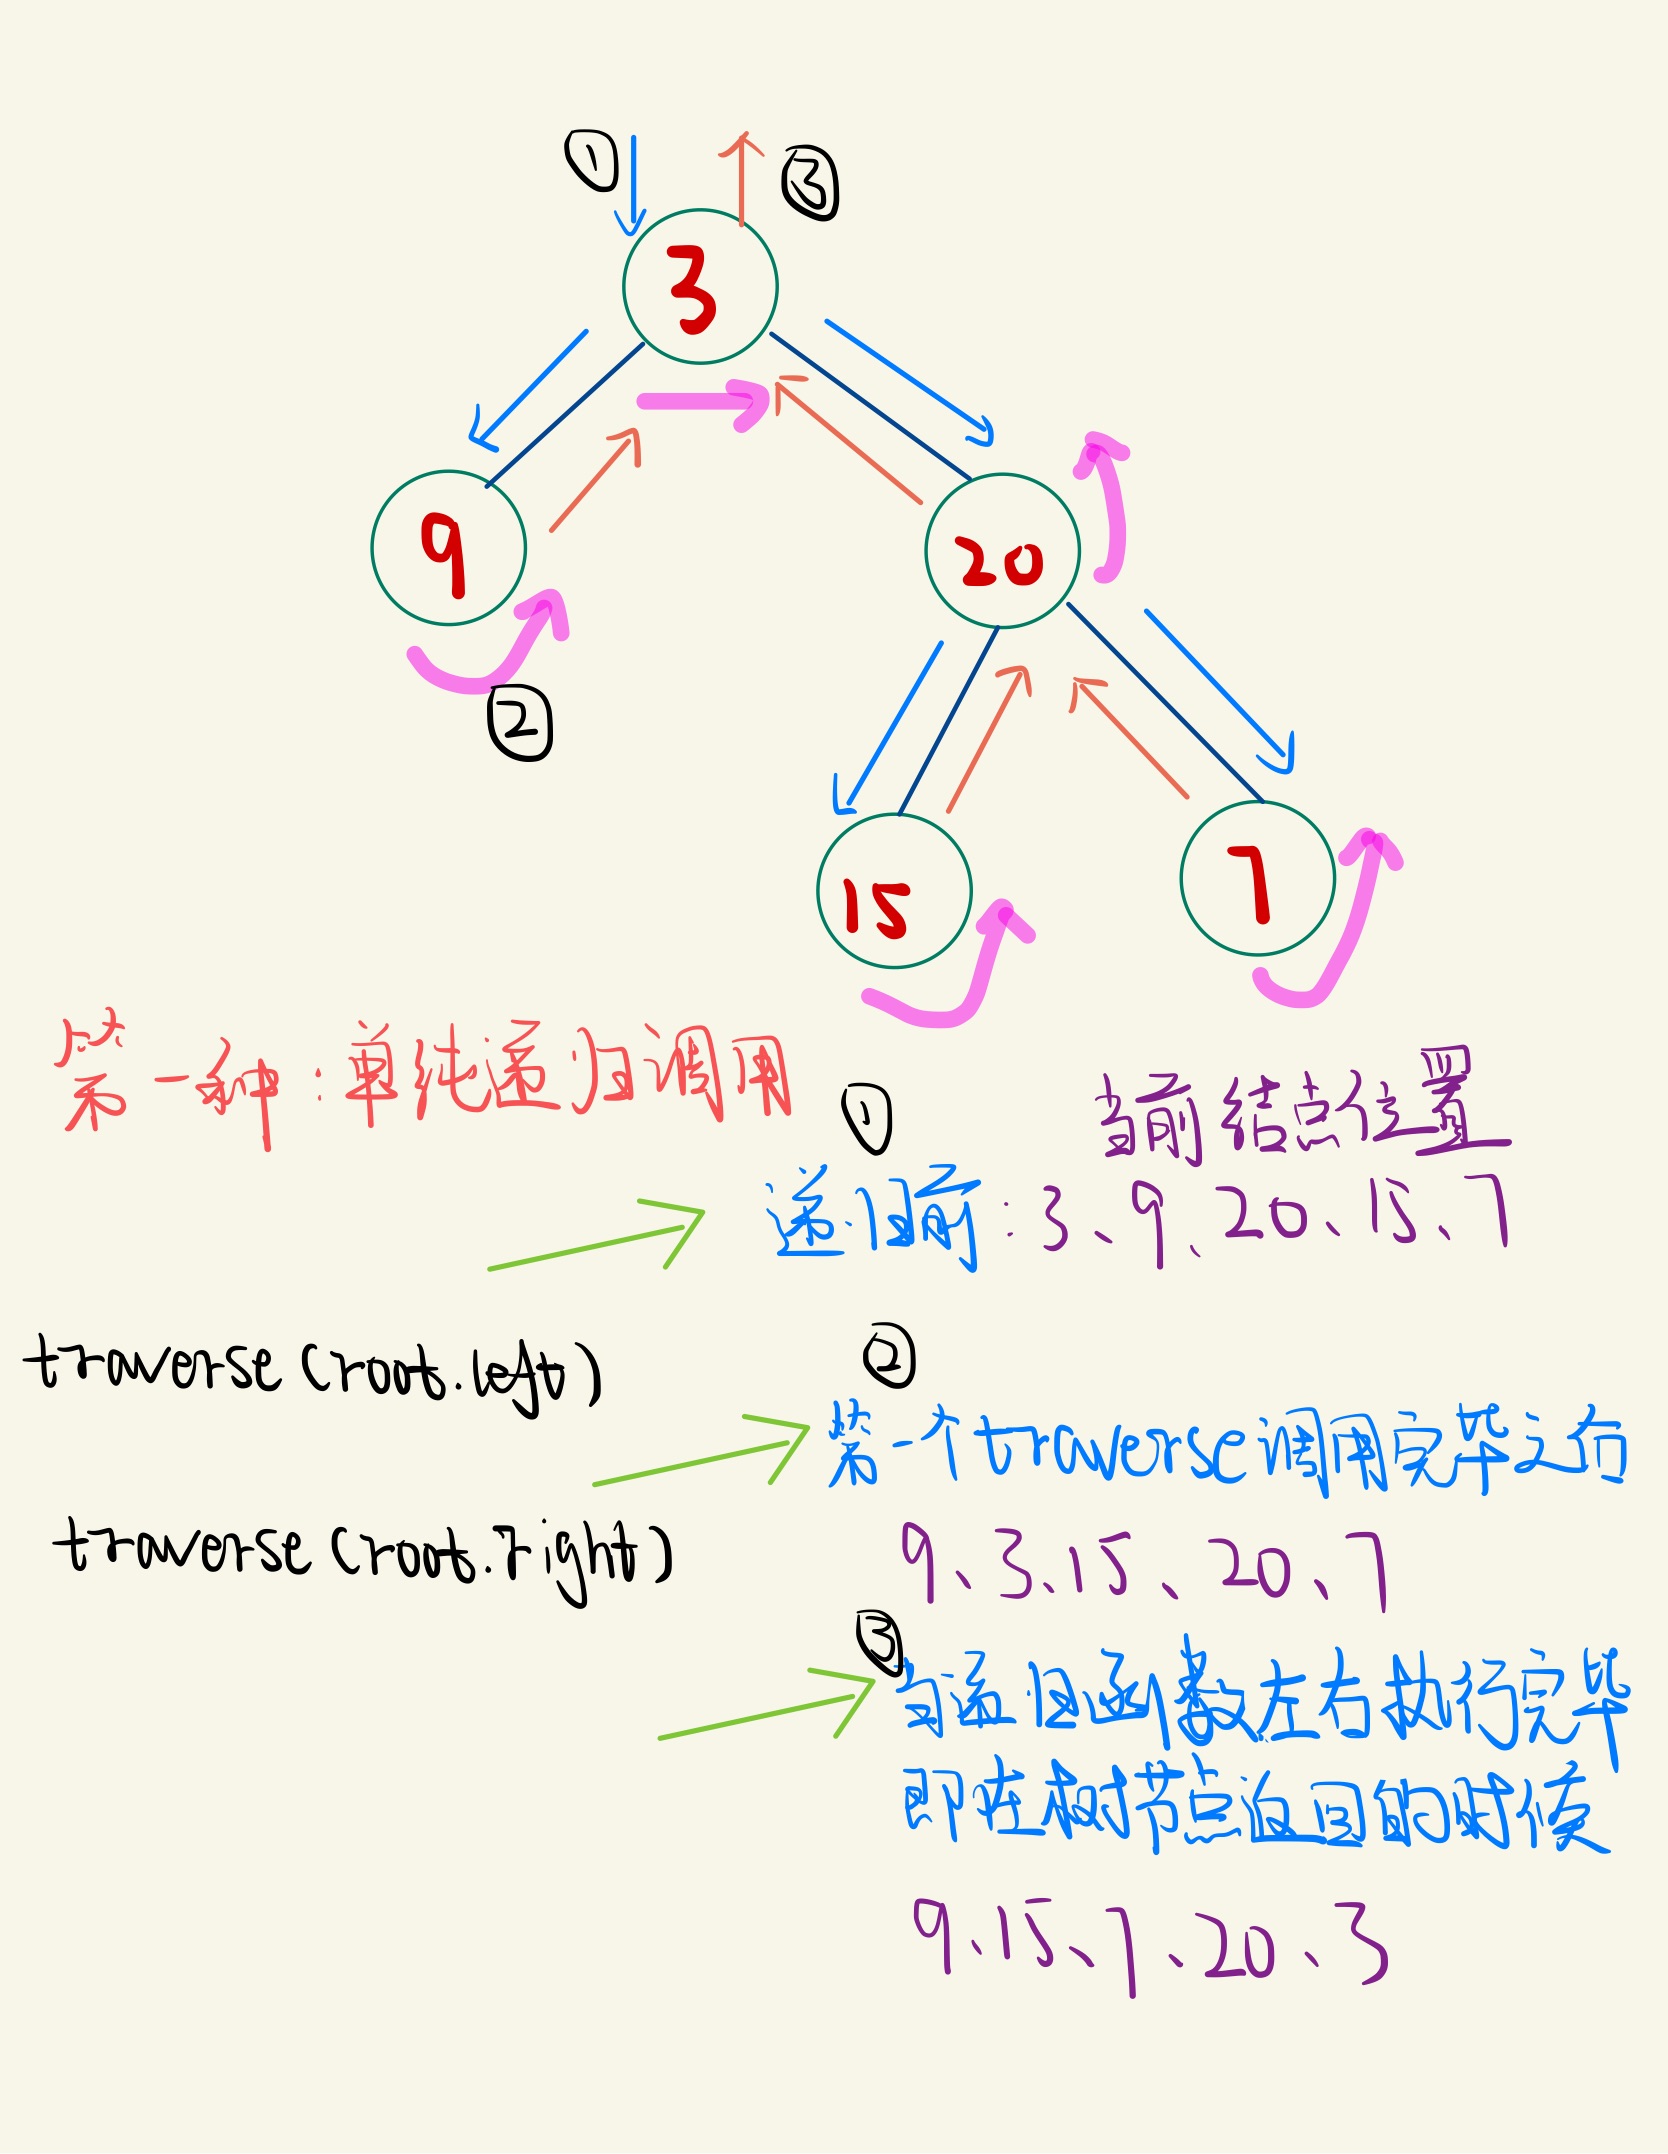 ① ③
3
9
20
②
15
7
第一种:单纯递归调用
① 当前结点位置
递归前:3、9、20、15、7
traverse(root.left)
②
第一个traverse调用完毕之后
traverse(root.right)
9、3、15、20、7
③
当递归函数左右执行完毕
即在树节点返回的时候
9、15、7、20、3